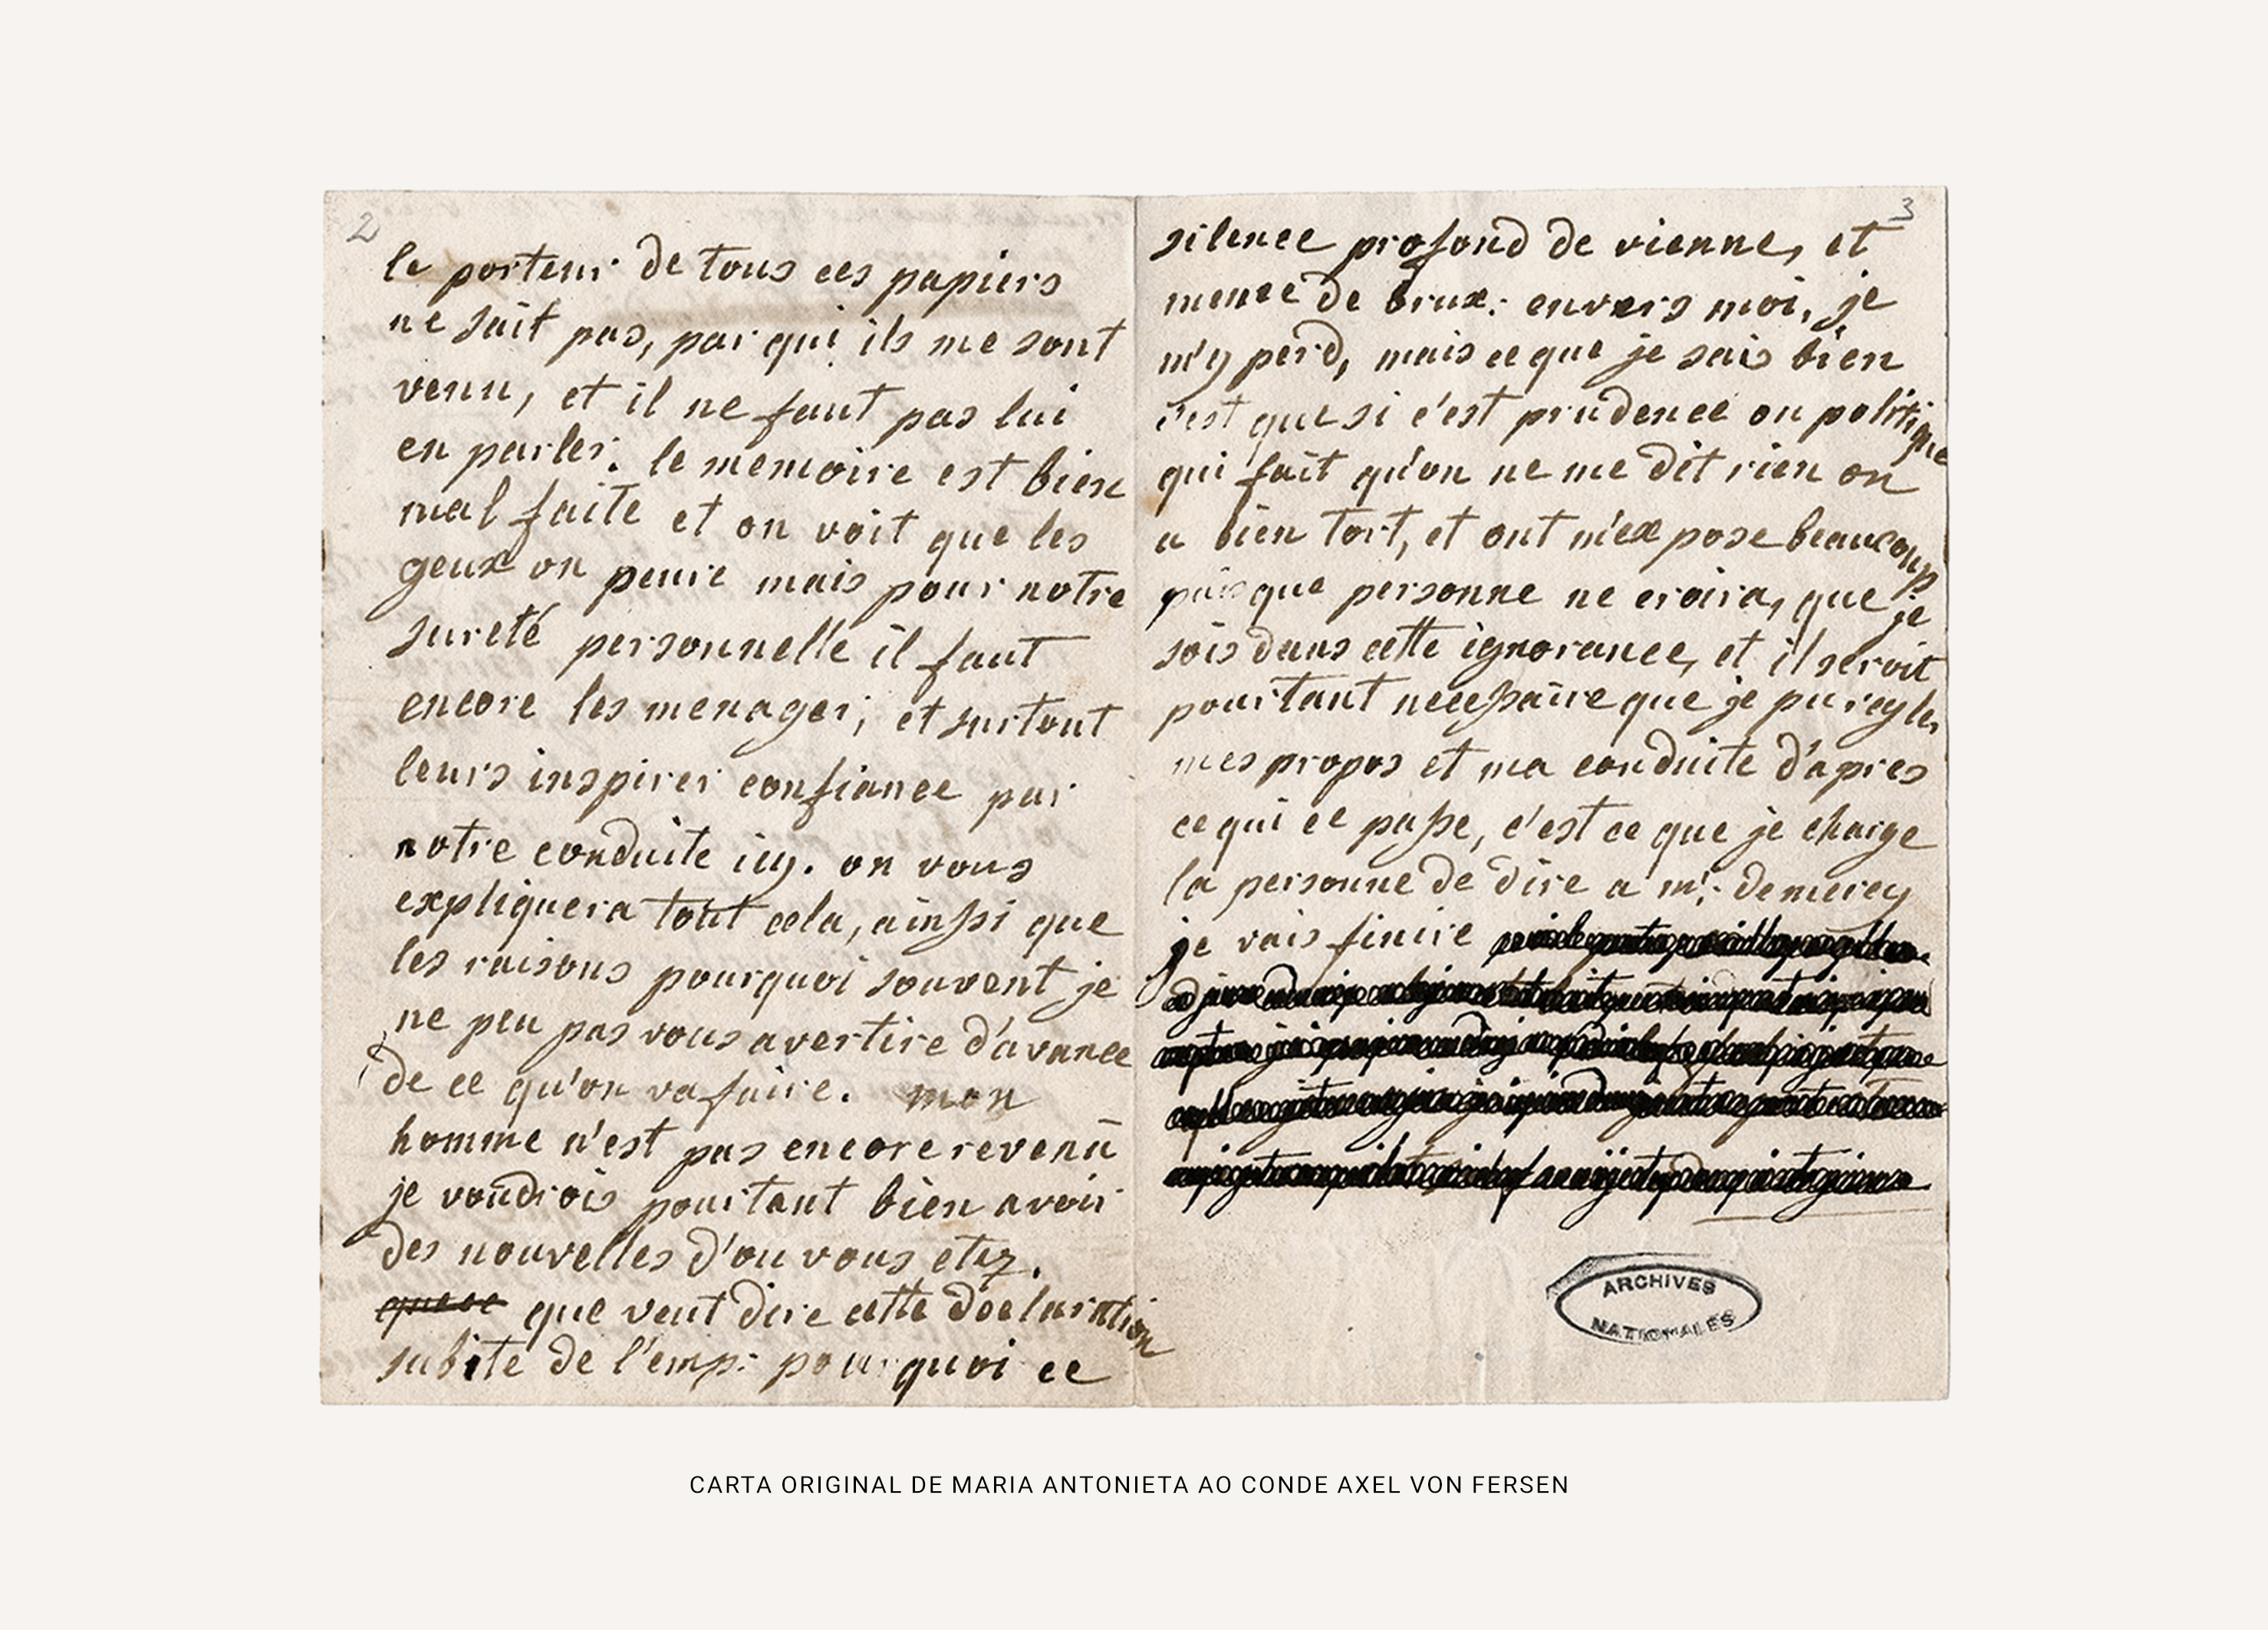 2
le porteur de tous ces papiers
ne sait pas, par qui ils me sont
venu, et il ne faut pas lui
en parler. le memoire est bien
mal faite et on voit que les
geux on peure mais pour notre
sureté personnelle il faut
encore les menager, et surtout
leurs inspirer confiance par
notre conduite icy. on vous
expliquera tout cela, ainssi que
les raisons pourquoi souvent je
ne peu pas vous avertire d'avance
de ce qu'on va faire. mon
homme n'est pas encore revenu
je voudrois pourtant bien avoir
des nouvelles d'ou vous etez.
que veut dire cette declaration
subite de l'emp: pourquoi ce
3
silence profond de vienne, et
meme de brux: envers moi, je
m'y perd, mais ce que je sais bien
c'est que si c'est prudence ou politique
qui fait qu'on ne me dit rien on
a bien tort, et ont m'expose beaucoup
puisque personne ne croira, que je
sois dans cette ignorance, et il seroit
pourtant necessaire que je pu regler
mes propos et ma conduite d'apres
ce qui ce passe, c'est ce que je charge
la personne de dire a mr: de mercy
je vais finire
ARCHIVES
NATIONALES
CARTA ORIGINAL DE MARIA ANTONIETA AO CONDE AXEL VON FERSEN